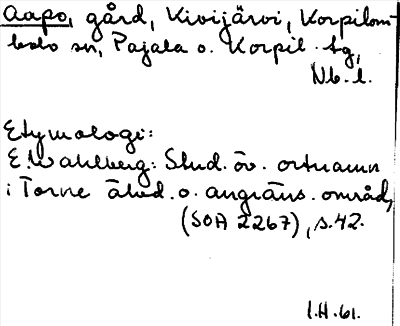 Aapo, gård, Kivijärvi, Korpilom-
bolo sn, Pajala o. Korpil. tg,
Nb. l.
Etymologi:
E. Wahlberg: Stud. öv. ortnamn
i Torne älvd. o. angräns. område,
(SOA 2267), s. 42.
I.H. 61.